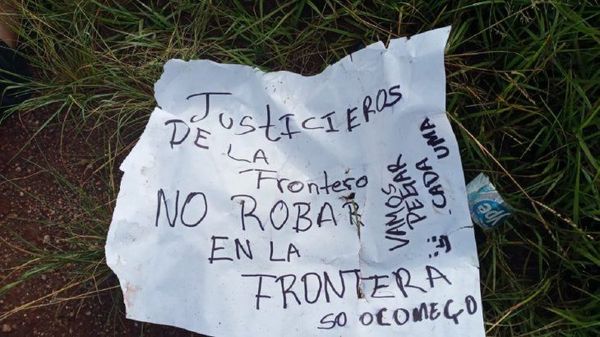 JUSTICIEROS
DE
LA
Frontero
NO ROBAR
EN LA
FRONTERA
SO OCOMEÇO
VAMOS
PEGAR
CADA UMA
pe